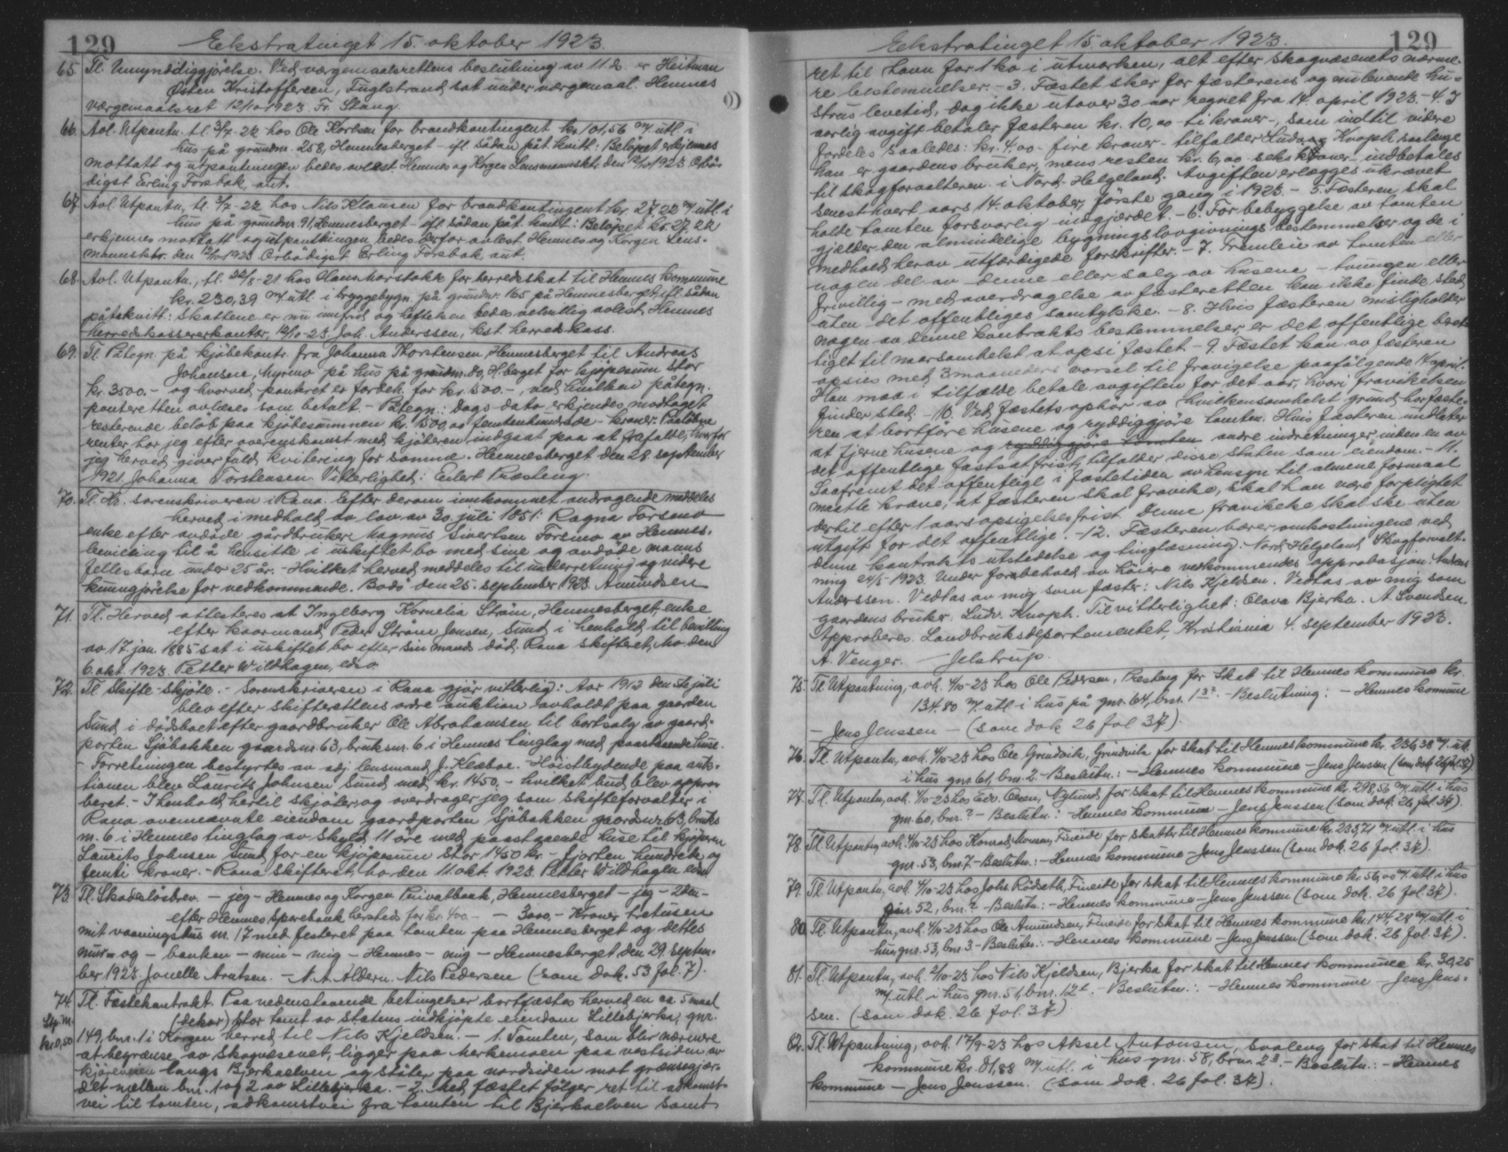 129 Ekstratinget 15. oktober 1923.
65. Tl. Umynddiggjörelse. Ved værgemaalsrettens beslutning av 11 ds. er Heitman
Østen Kristoffersen, Fuglstrand sat under værgemaal. Hemnes
værgemaalsret 12/10 1923 Fr. Stang.
66. Avl. Utpantn. tl. 3/7-22 hos Ole Korbsen for brandkontingent kr. 101,56 m/utl. i
hus på grundnr. 258, Hemnesberget - ifl. sådan påt. kvitt: Beløpet erkjennes
mottatt og utpantningen bedes avlest. Hemnes og Korgen Lensmannsktr. den 12/10 1923 Ærbø-
digst Erling Forsbak aut.
67. Avl. Utpantn. tl. 3/7-22 hos Nils Klausen for brandkontingent kr. 27,22 m/utl. i
hus på grundnr. 91, Hemnesberget - ifl. sådan påt. kvitt: Beløpet kr. 27,22
erkjennes mottatt og utpantningen bedes derfor avlest. Hemnes og Korgen Lens-
mannsktr. den 12/10 1923 Ærbödigst Erling Forsbak aut.
68. Avl. Utpantn. tl. 22/8-21 hos Hans Horstakke for herredsskat til Hemnes kommune
kr. 230,39 m/utl. i bryggebygn. på grundnr. 165 på Hemnesberget, ifl. sådan
påtekvitt: Skattene er nu innfrid og heftelsen bedes velvillig avlest. Hemnes
herredskassererkontor, 12/10-23 Joh. Anderssen, kst. herredskass.
69. Tl. Påtegn. på kjöbekontr. fra Johanna Thorstensen, Hemnesberget til Andreas
Johansen, Myrmo på hus på grundnr. do, H.berget for kjöpesum stor
kr. 3500.- og hvorved panteret er forbeh. for kr. 1500.-, ved hvilken påtegn.
panteretten avlöses som betalt. - Påtegn: Dags dato erkjendes modtaget
resterende beløb paa kjöbesummen kr. 1500,00 femtenhundrede - kroner. Paalöbne
renter har jeg efter overenskomst med kjöberen indgaat paa at frafalle, hvorfor
jeg herved giver fuld kvitering for samme. Hemnesberget den 28. september
1921. Johanna Torstensen Vitterlighed: Eilert Præsteng.
70. Tl. Hr. sorenskriveren i Rana. Efter derom innkommet andragende meddeles
herved i medhold av lov av 30. juli 1851: Ragna Forsmo
enke efter avdöde gårdbruker Magnus Sivertsen Forsmo av Hemnes.
bevilling til å hensitte i uskiftet bo med sine og avdöde manns
fellesbarn under 25 år. - Hvilket herved meddeles til underretning og videre
kunngjörelse for vedkommande. Bodö den 25. september 1923 Amundsen
71. Tl. Herved attesteres at Ingeborg Kornelia Ström, Hemnesberget, enke
efter kaarmand Peder Ström Jensen, Sund, i henhold til bevilling
av 17. jan. 1885 sat i uskiftet bo efter sin mands död. Rana skifteret, Mo den
6. okt. 1923. Petter Wildhagen, edv.
72. Tl. Skifte-skjöte. - Sorenskriveren i Rana gjör vitterlig: Aar 1913 den 24 juli
blev efter skifterettens ordre auktion avholdt paa gaarden
Sund i dödsboet efter gaardbruker Ole Abrahamsen til bortsalg av gaard-
parten Sjöbakken gaardsnr. 63, bruksnr. 6 i Hemnes tinglag med paastaaende huse.
- Forretningen bestyrtes av avj. lensmand J. Klæboe. - Höistbydende paa auk-
tionen blev Laurits Johnsen Sund med kr. 1450.- hvilket bud blev appro-
beret. - I henhold hertil skjöter og overdrager jeg som skifteforvalter i
Rana ovennævnte eiendom gaardparten Sjöbakken gaardsnr. 63, bruks
nr. 6 i Hemnes tinglag av skyld 11 öre med paastaaende huse til kjöperen
Laurits Johnsen Sund for en kjöpesum stor 1450 kr. - fjorten hundrede og
femti kroner. - Rana skifteret, Mo den 11 okt. 1923. Petter Wildhagen edv
73. Tl. Skadeslösbrev. - jeg - Hemnes og Korgen Privatbank, Hemnesberget - jeg - 2den -
efter Hemnes sparebank herstd. for kr. 400.- - 3000.- Kroner tretusen
mit vaaningshus nr. 17 med festeret paa tomten paa Hemnesberget og dettes
mur - og - banken - min - mig - Hemnes - mig - Hemnesberget den 29. septem-
ber 1923. Jonelle Arntsen. - N. A. Aldern. Nils Pedersen (som dok. 53 fol. 7).
74. Tl. Fæstekontrakt. Paa nedenstaaende betingelser bortfæstes herved en ca. 5 maal
Stp. m. (dekar) stor tomt av statens indkjöpte eiendom Lillebjerka, gnr.
kr. 0,50 149, bnr. 1 i Korgen herred til Nils Kjeldsen. - 1. Tomten, som blir nærmere
at begrænse av skogvæsenet, ligger paa Merkemoen paa vestsiden av
kjöreveien langs Bjerkaelven og støter paa nordsiden mot grænsegjær-
det mellem bnr. 1 og 2 av Lillebjerka. - 2. Med fæstet fölger ret til adkomst-
vei til tomten, adkomstvei fra tomten til Bjerkaelven samt
Ekstratinget 15 oktober 1923. 129
ret til havn for 1 ko i utmarken, alt efter skogvæsenets nærme-
re bestemmelser. - 3. Fæstet sker for fæsterens og nulevende hu-
strus levetid, dog ikke utover 30 aar regnet fra 14. april 1923. - 4. I
aarlig avgift betaler fæsteren kr. 10,00 - ti kroner -, som indtil videre
fordeles saaledes: kr. 4,00 - fire kroner - tilfalder Ludvig Knoph saalenge
han er gaardens bruker, mens resten kr. 6,00 - seks kroner - indbetales
til skogforvalteren i Nord. Helgeland. Avgiften erlægges ukrævet
senest hvert aars 14. oktober, förste gang i 1923. - 5. Fæsteren skal
holde tomten forsvarlig indgjærdet. - 6. For bebyggelse av tomten
gjælder den almindelige bygningslovgivnings bestemmelser og de i
medhold herav utfærdigede forskrifter. - 7. Fremleie av tomten eller
nogen del av denne eller salg av husene - tvungen eller
frivillig - med overdragelse av fæsteretten kan ikke finde sted
uten det offentliges samtykke. - 8. Hvis fæsteren misligholder
nogen av denne kontrakts bestemmelser er det offentlige beret-
tiget til uvarsomhelst at opsi fæstet. - 9. Fæstet kan av fæsteren
opsies med 3 maaneders varsel til fravigelse paafölgende 14 april.
Han maa i tilfælde betale avgiften for det aar, hvori fravikelsen
finder sted. - 10. Ved fæstets ophör av hvilkensomhelst grund har fæste-
ren at bortföre husene og ryddiggjöre tomten. Hvis fæsteren undlater
at fjerne husene og ryddiggjöre tomten andre indretninger inden en av
det offentlige fastsat frist, tilfalder disse staten som eiendom. - 11.
Saafremt det offentlige i fæstetiden av hensyn til almene formaal
maatte kræve, at fæsteren skal fravike, skal han være forpligtet
dertil efter 1 aars opsigelsesfrist. Denne fravikelse skal ske uten
utgift for det offentlige. - 12. Fæsteren bærer omkostningene ved
denne kontrakts utstedelse og tinglæsning. Nord. Helgeland Skogforvalt-
ning 24/5 1923. Under forbehold av höiere vedkommendes approbasjon: Anders
Anderssen. Vedtas av mig som fæster: Nils Kjeldsen. Vedtas av mig som
gaardens bruker: Ludv. Knoph. Til vitterlighet: Olava Bjerka. A. Svendsen.
Approberes. Landbruksdepartementet, Kristiania 4. september 1923.
A. Venger. Jelstrup.
75. Tl. Utpantning, avh. 4/10-23 hos Ole Pedersen, Præsteng for skat til Hemnes kommune kr.
134.80 m/utl. i hus på gnr. 64, bnr. 13?. - Beslutning: - Hemnes kommune
- Jens Jenssen - (som dok. 26 fol. 34)
76. Tl. Utpantn. avh. 4/10-23 hos Ole Grindvik, Grindvik for skat til Hemnes kommune kr. 236,38 m/utl.
i hus gnr. 61, bnr. 2. - Beslutn: - Hemnes kommune - Jens Jenssen (som dok. 26 fol. 34)
77. Tl. Utpantn. avh. 4/10-23 hos Edv. Olsen, Nylund, for skat til Hemnes kommune kr. 298,56 m/utl. i hus
gnr. 60, bnr. ? - Beslutn: - Hemnes kommune - Jens Jenssen (som dok. 26 fol. 34).
78. Tl. Utpantn. avh. 4/10-23 hos Konrad Monsen, Fineide for skatter til Hemnes kommune kr. 235,71 m/utl. i hus
gnr. 53, bnr. 7. - Beslutn: - Hemnes kommune - Jens Jenssen (som dok. 26 fol. 34).
79. Tl. Utpantn. avh. 4/10-23 hos Johs Rödseth, Fineide for skat til Hemnes kommune kr. 56,00 m/utl. i hus
gnr. 52, bnr. ? - Beslutn: - Hemnes kommune - Jens Jenssen (som dok. 26 fol. 34).
80. Tl. Utpantn. avh. 4/10-23 hos Ole Amundsen, Fineide for skat til Hemnes kommune kr. 144.28 m/utl. i
hus gnr. 53, bnr. 3 - Beslutn: - Hemnes kommune - Jens Jenssen (som dok. 26 fol. 34).
81. Tl. Utpantn. avh. 2/10-23 hos Nils Kjeldsen, Bjerka for skat til Hemnes kommune kr. 30,25
m/utl. i hus gnr. 51, bnr. 12. - Beslutn: - Hemnes kommune - Jens Jens-
sen. (som dok. 26 fol. 34)
82. Tl. Utpantning, avh. 17/9-23 hos Aksel Antonsen, Svaleng for skat til Hemnes
kommune kr. 81,88 m/utl. i hus gnr. 58, bnr. 2. - Beslutn: - Hemnes
kommune - Jens Jenssen. (som dok. 26 fol. 34).